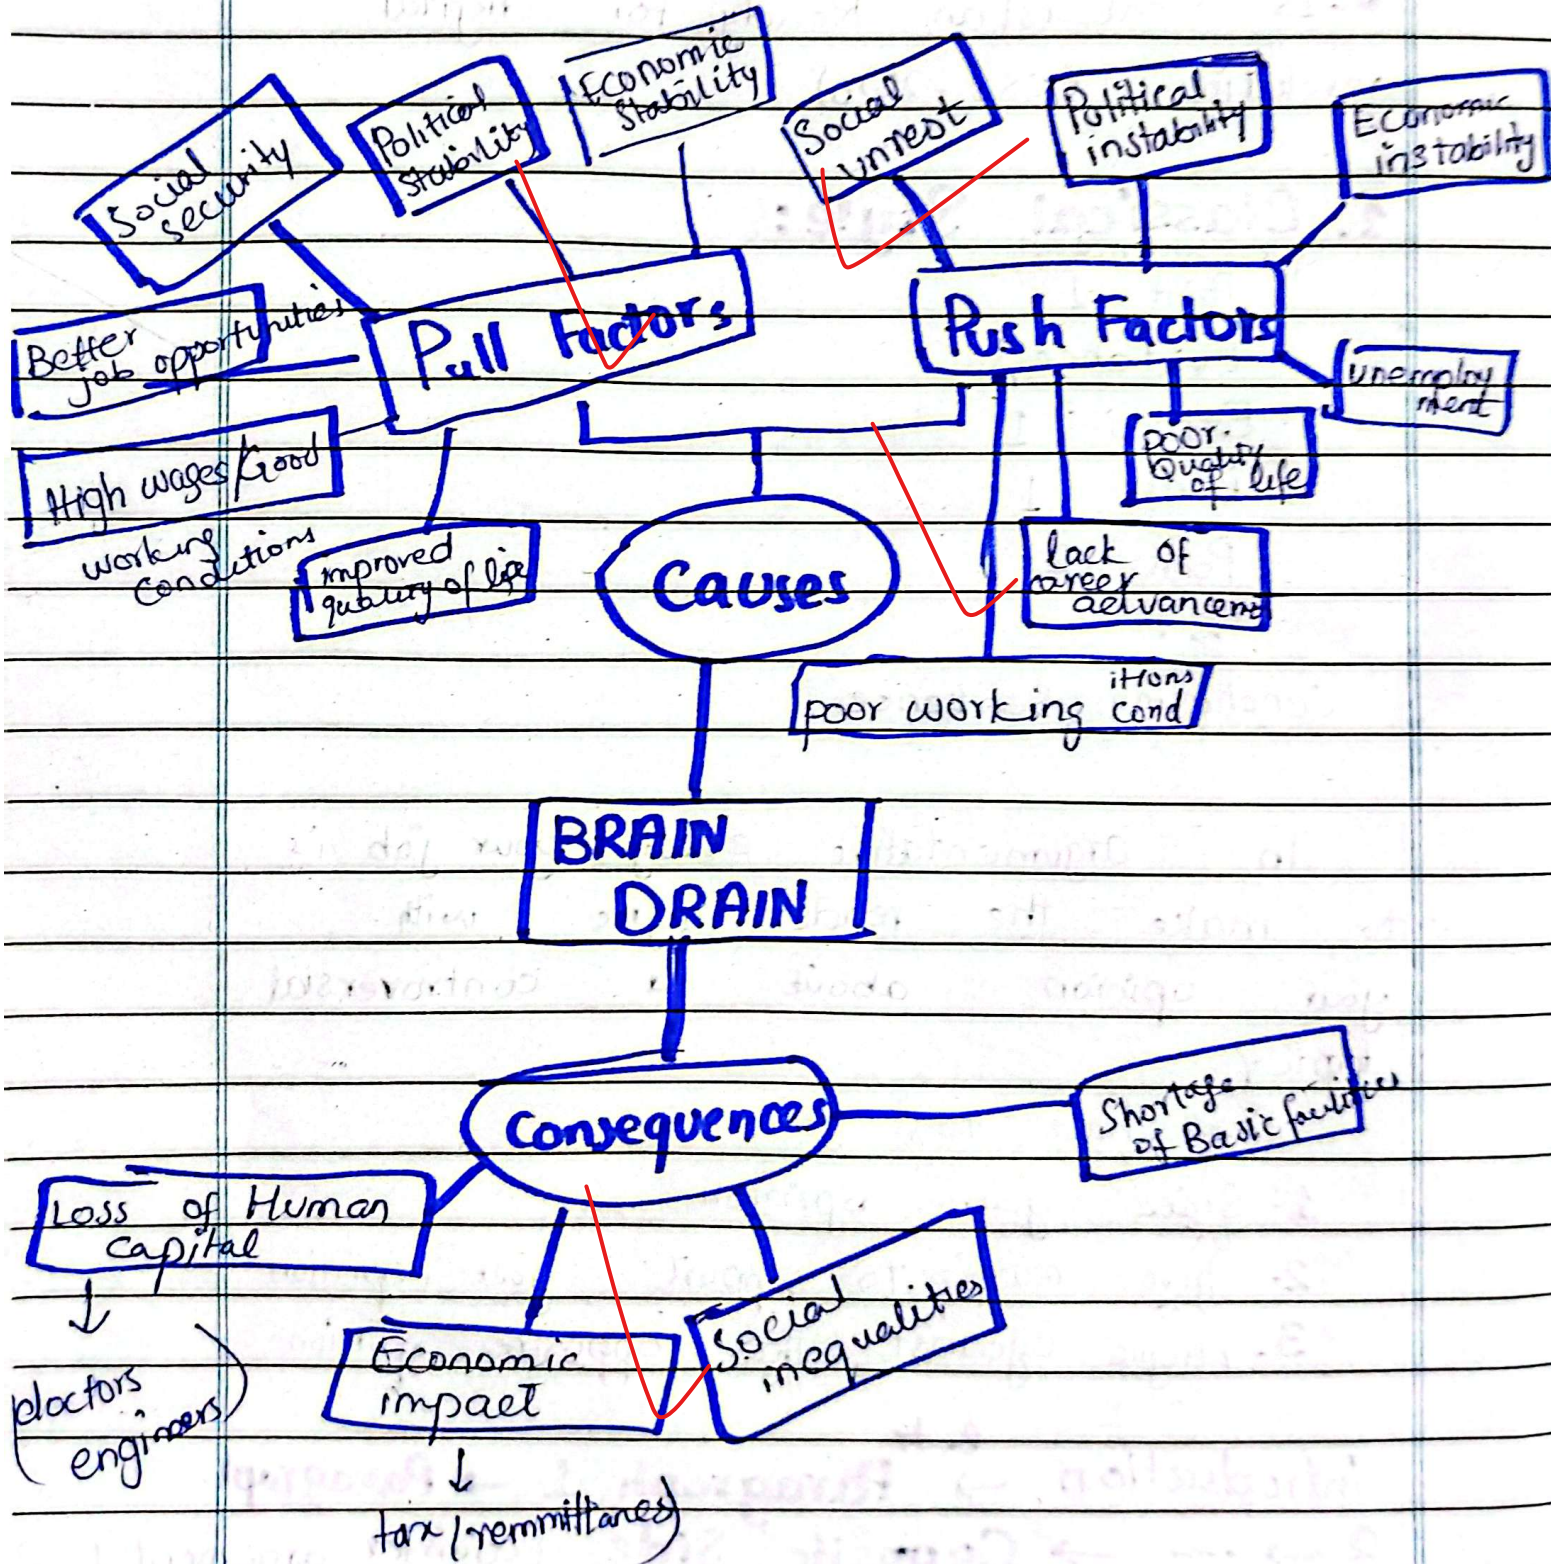 Social
security
Political
stability
Economic
Stability
Social
unrest
Political
instability
Economic
instability
Better
job opportunities
Pull Factors
Push Factors
unemploy
ment
High wages/Good
working
conditions
improved
quality of life
poor
Quality
of life
Causes
lack of
career
advancem
poor working cond
itions
BRAIN
DRAIN
Consequences
Shortage
of Basic facilities
Loss of Human
capital
doctors
engineers
Economic
impact
Social
inequalities
tax (remmittances)